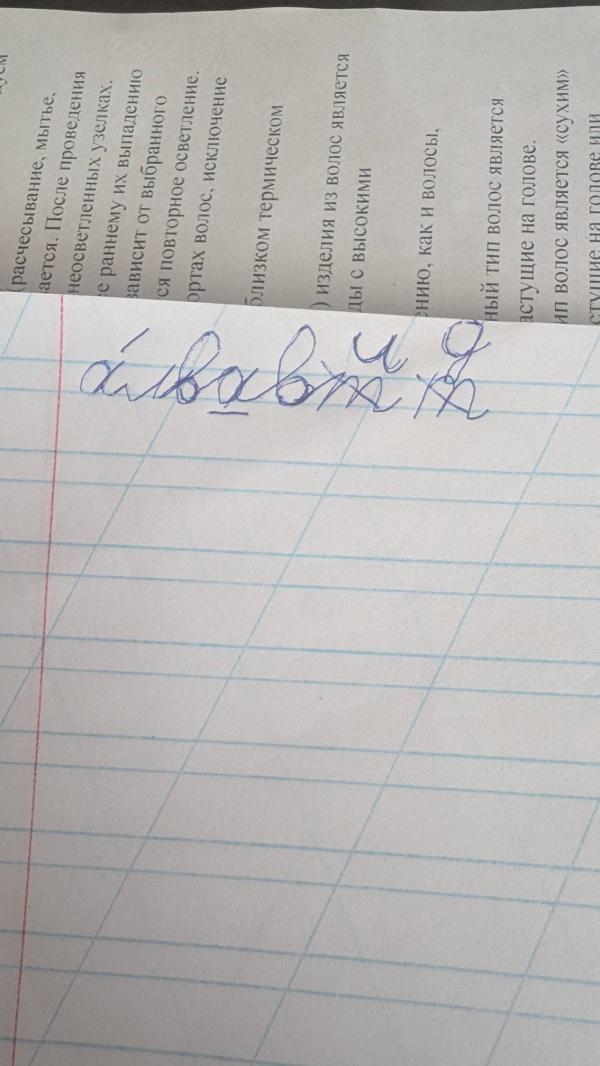 дуем
(расчесывание, мытье,
ается. После проведения
неосветленных узелках.
е раннему их выпадению
зависит от выбранного
ся повторное осветление.
ортах волос, исключение
близком термическом
) изделия из волос является
ды с высокими
ению, как и волосы,
ный тип волос является
астущие на голове.
ип волос является «сухим»
стущие на голове или
и д